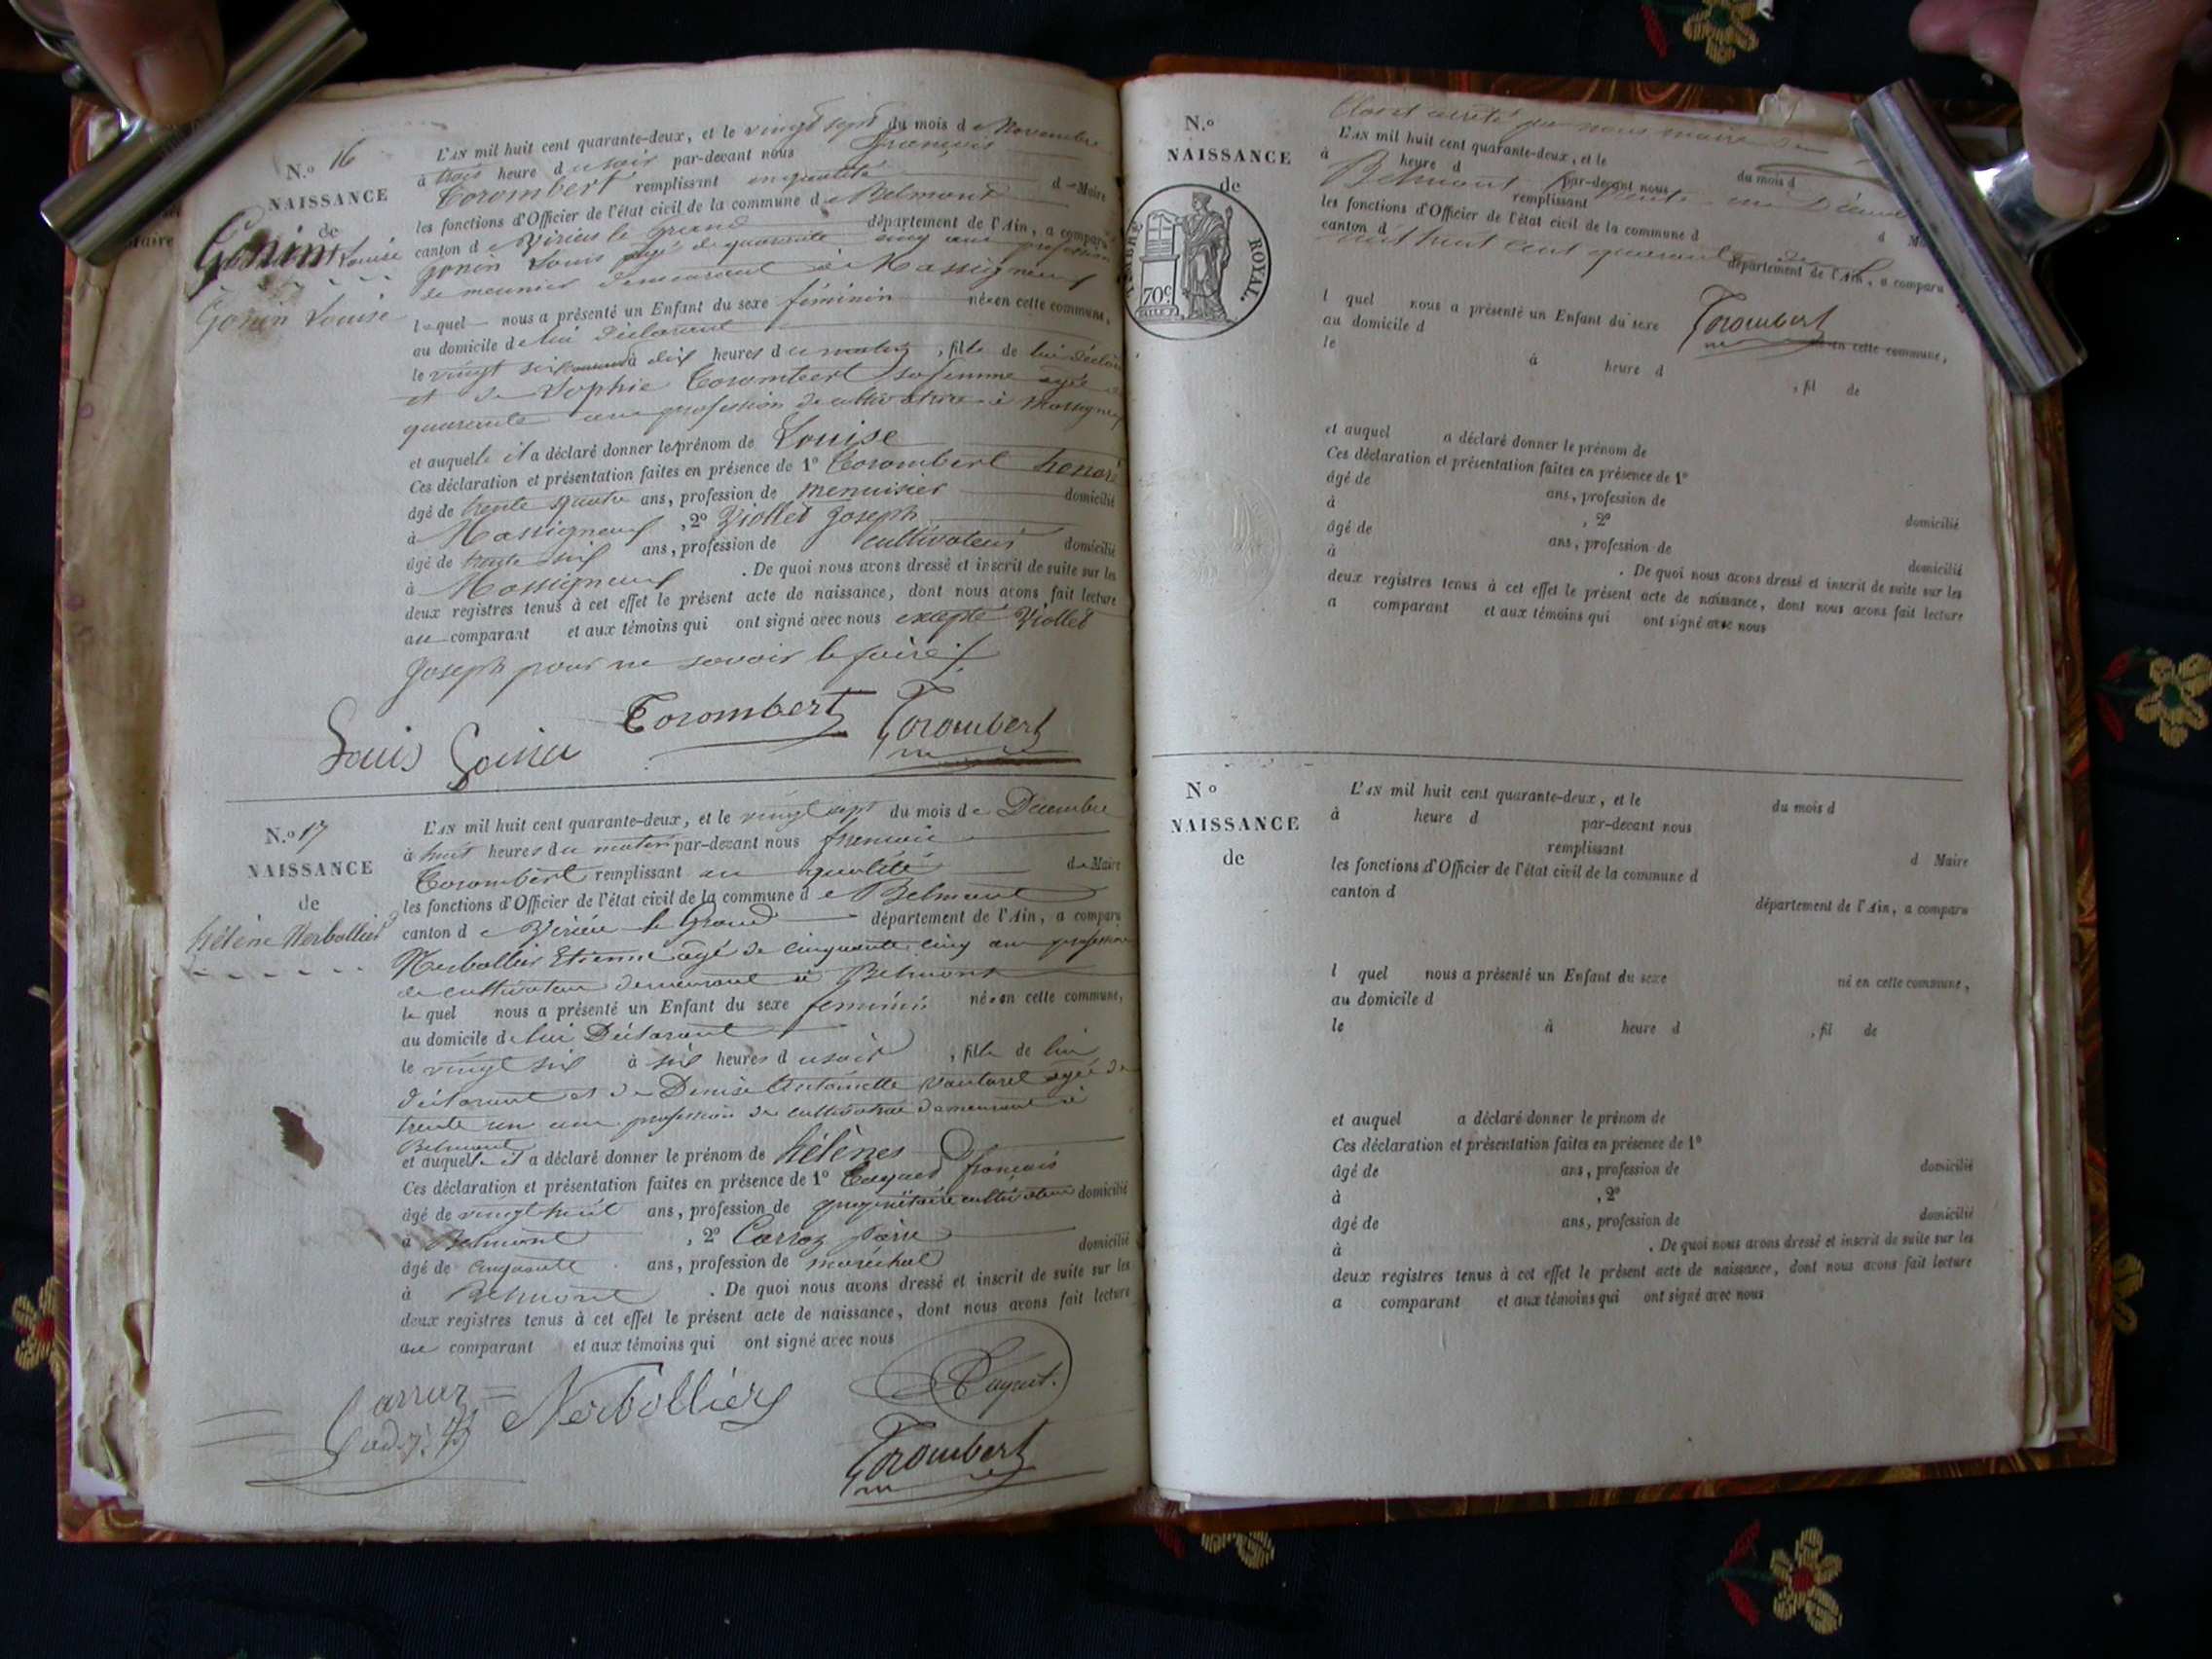 N.º 16
NAISSANCE
de
Gonin Louise
Gonin Louise
L'AN mil huit cent quarante-deux, et le vingt sept du mois de Novembre
à trois heure du soir par-devant nous François
Corombert remplissant en qualité de Maire
les fonctions d'Officier de l'état civil de la commune de Belmont
canton de Virieu le grand département de l'Ain, a comparu
gonin Louis agé de quarante cinq ans profession
de meunier demeurant à Massigneux
lequel nous a présenté un Enfant du sexe féminin née en cette commune,
au domicile de lui déclarant
le vingt six à dix heures du matin, fille de lui déclarant
et de Sophie Corombert sa femme agée de
quarante ans profession de cultivatrice à Massigneux
et auquelle il a déclaré donner le prénom de Louise
Ces déclaration et présentation faites en présence de 1º Corombert honoré
âgé de trente quatre ans, profession de menuisier domicilié
à Massigneux, 2º Viollet Joseph
âgé de trente six ans, profession de cultivateur domicilié
à Massigneux. De quoi nous avons dressé et inscrit de suite sur les
deux registres tenus à cet effet le présent acte de naissance, dont nous avons fait lecture
au comparant et aux témoins qui ont signé avec nous excepté Viollet
Joseph pour ne savoir le faire
Louis Gonin Corombert Corombert
N.º 17
NAISSANCE
de
hélène Nerbollier
L'AN mil huit cent quarante-deux, et le vingt sept du mois de Décembre
à huit heures du matin par-devant nous francois
Corombert remplissant en qualité de Maire
les fonctions d'Officier de l'état civil de la commune de Belmont
canton de Virieu le Grand département de l'Ain, a comparu
Nerbollier Etienne agé de cinquante cinq ans profession
de cultivateur demeurant à Belmont
le quel nous a présenté un Enfant du sexe feminin née en cette commune,
au domicile de lui Déclarant
le vingt six à six heures du soir, fille de lui
déclarant et de Denise Antoinette vauturel agée de
trente un ans profession de cultivatrice demeurant à
Belmont
et auquelle il a déclaré donner le prénom de hélènes
Ces déclaration et présentation faites en présence de 1º francois
âgé de vingt huit ans, profession de propriétaire cultivateur domicilié
à Belmont, 2º Carraz
âgé de cinquante ans, profession de maréchal domicilié
à Belmont. De quoi nous avons dressé et inscrit de suite sur les
deux registres tenus à cet effet le présent acte de naissance, dont nous avons fait lecture
au comparant et aux témoins qui ont signé avec nous
Nerbolliers
Corombert
Clos et arrêté par nous maire de
Belmont trente un Décembre
mil huit cent quarante deux
Corombert
N.º
NAISSANCE
de
TIMBRE ROYAL.
70c
L'AN mil huit cent quarante-deux, et le du mois d
à heure d par-devant nous
remplissant d Maire
les fonctions d'Officier de l'état civil de la commune d
canton d département de l'Ain, a comparu
l quel nous a présenté un Enfant du sexe né en cette commune,
au domicile d
le à heure d , fil de
et auquel a déclaré donner le prénom de
Ces déclaration et présentation faites en présence de 1º
âgé de ans, profession de
à , 2º domicilié
âgé de ans, profession de
à . De quoi nous avons dressé et inscrit de suite sur les domicilié
deux registres tenus à cet effet le présent acte de naissance, dont nous avons fait lecture
a comparant et aux témoins qui ont signé avec nous
Nº
NAISSANCE
de
L'AN mil huit cent quarante-deux, et le du mois d
à heure d par-devant nous
remplissant d Maire
les fonctions d'Officier de l'état civil de la commune d
canton d département de l'Ain, a comparu
l quel nous a présenté un Enfant du sexe né en cette commune,
au domicile d
le à heure d , fil de
et auquel a déclaré donner le prénom de
Ces déclaration et présentation faites en présence de 1º
âgé de ans, profession de domicilié
à , 2º
âgé de ans, profession de domicilié
à . De quoi nous avons dressé et inscrit de suite sur les
deux registres tenus à cet effet le présent acte de naissance, dont nous avons fait lecture
a comparant et aux témoins qui ont signé avec nous